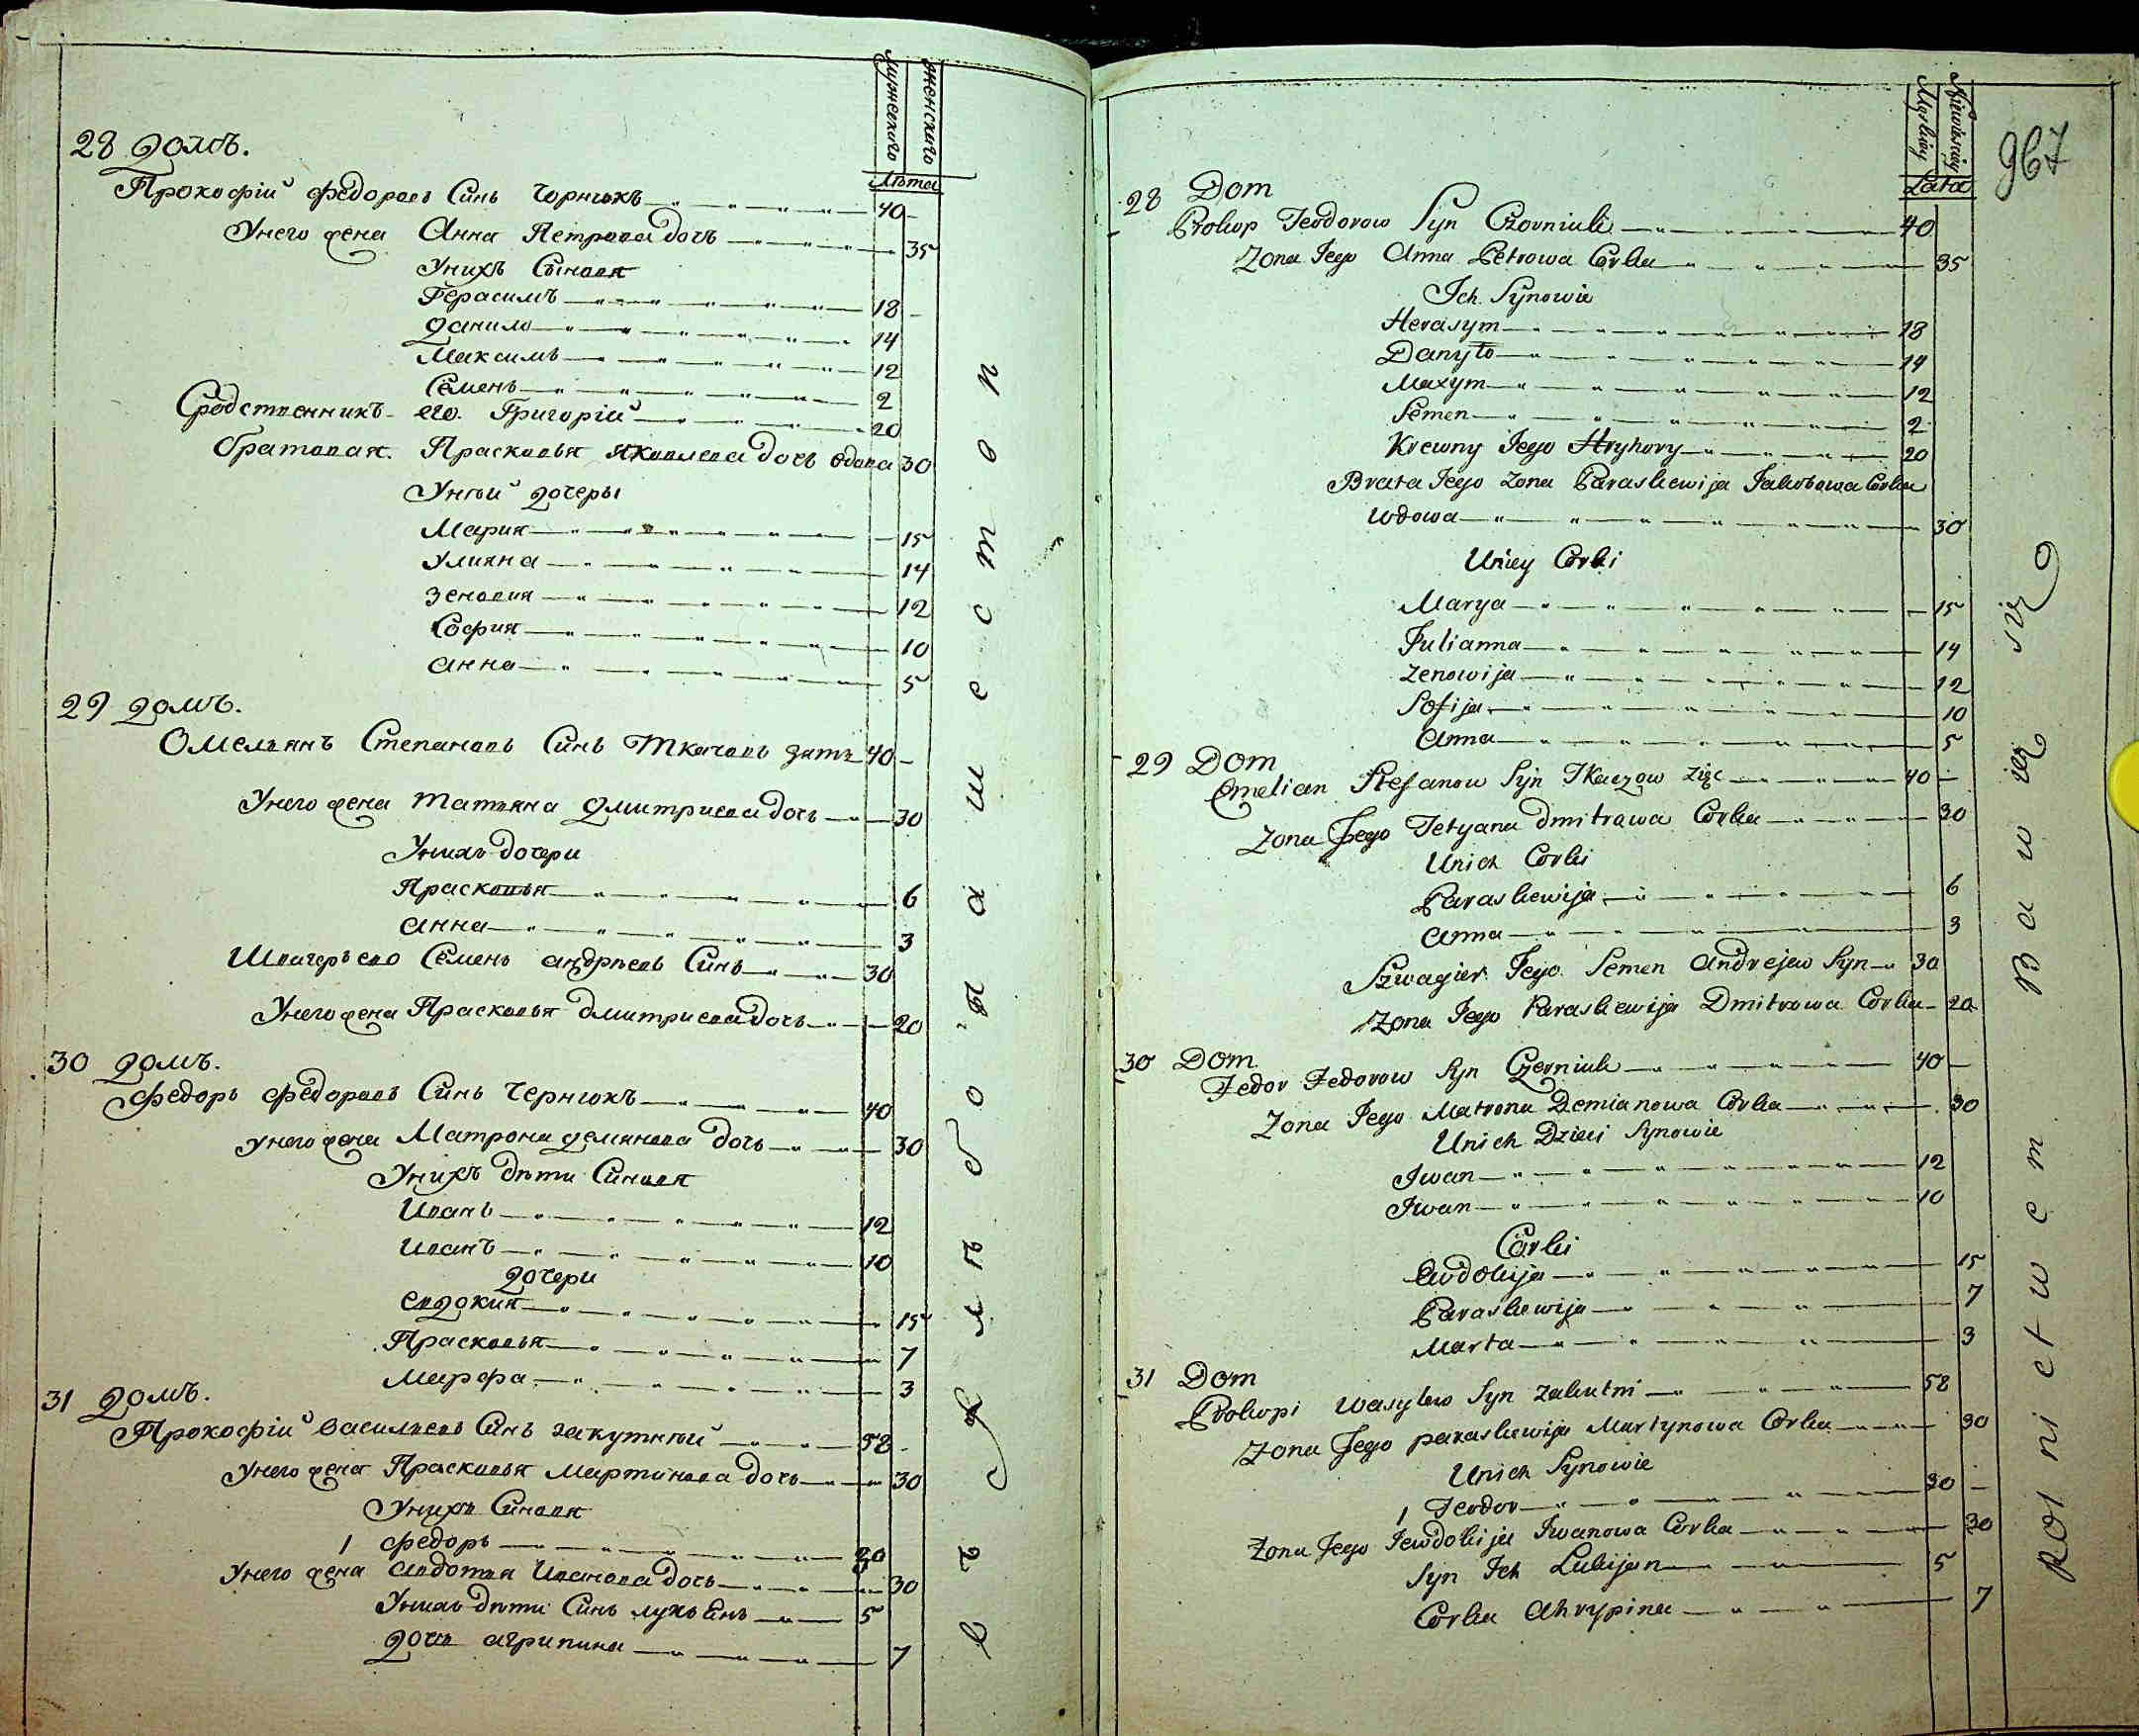 Мужескаго
Женскаго
Лѣта
28 Домъ.
Прокофій Федоровъ Синъ Чорнюкъ 40 -
Унего жена Анна Петрова дочъ 35
Унихъ Сыновя
Герасимъ 18 -
Данило 14
Максимъ 12
Семенъ 2
Сродственникъ его Григорій 20
братовая Прасковья Яковлева дочъ вдова 30
Уней дочеры
Мария 15
Улияна 14
Зеновия 12
София 10
Анна 5
29 Домъ.
Омельянъ Степановъ Синъ Ткачовъ зять 40 -
Унего жена Татьяна Дмитриева дочъ 30
Унихъ дочери
Прасковья 6
Анна 3
Швагеръ его Семенъ Андрѣевъ Синъ 30
Унего жена Прасковья Дмитриева дочъ 20
30 Домъ.
Федоръ Федоровъ Синъ Чернюкъ 40
Унего жена Матрона Демянова дочъ 30
Унихъ дѣти Синовя
Иванъ 12
Иванъ 10
Дочери
Евдокия 15
Прасковья 7
Марфа 3
31 Домъ.
Прокофій Васильевъ Синъ Закутній 58 -
Унего жена Прасковья Мартинова дочъ 30
Унихъ Синовя
1 Федоръ
Унего жена Авдотья Иванова дочъ 30
Унихъ дѣти Синъ Лукьянъ 5
Дочъ Агрипина 7
967
Lata
28 Dom
Prokop Teodorow Syn Czorniuk 40
Zona Jego Anna Petrowa Corka 35
Ich Synowie
Herasym 18
Danyło 14
Maxym 12
Semen 2
Krewny Jego Hryhory 20
Brata Jego Zona Paraskewija Jakobowa Corka
Wdowa 30
Uniey Corki
Marya 15
Julianna 14
Zenowija 12
Sofija 10
Anna 5
29 Dom
Omelian Stefanow Syn Tkaczow Zięc 40 -
Zona Jego Tetyana Dmitrowa Corka 30
Unich Corki
Paraskewija 6
Anna 3
Szwagier Jego Semen Andrejew Syn 30
Zona Jego Paraskewija Dmitrowa Corka 20
30 Dom
Fedor Fedorow Syn Czerniuk 40 -
Zona Jego Matrona Demianowa Corka 30
Unich Dzieci Synowie
Iwan 12
Iwan 10
Corki
Ewdokija 15
Paraskewija 7
Marta 3
31 Dom
Prokopi Wasylew Syn Zakutni 58
Zona Jego Paraskewija Martynowa Corka 30
Unich Synowie
1 Teodor 30 -
Zona Jego Jewdokija Iwanowa Corka 30
Syn Ich Lukijan 5
Corka Ahrypina 7
Rolnictwem Bawią się